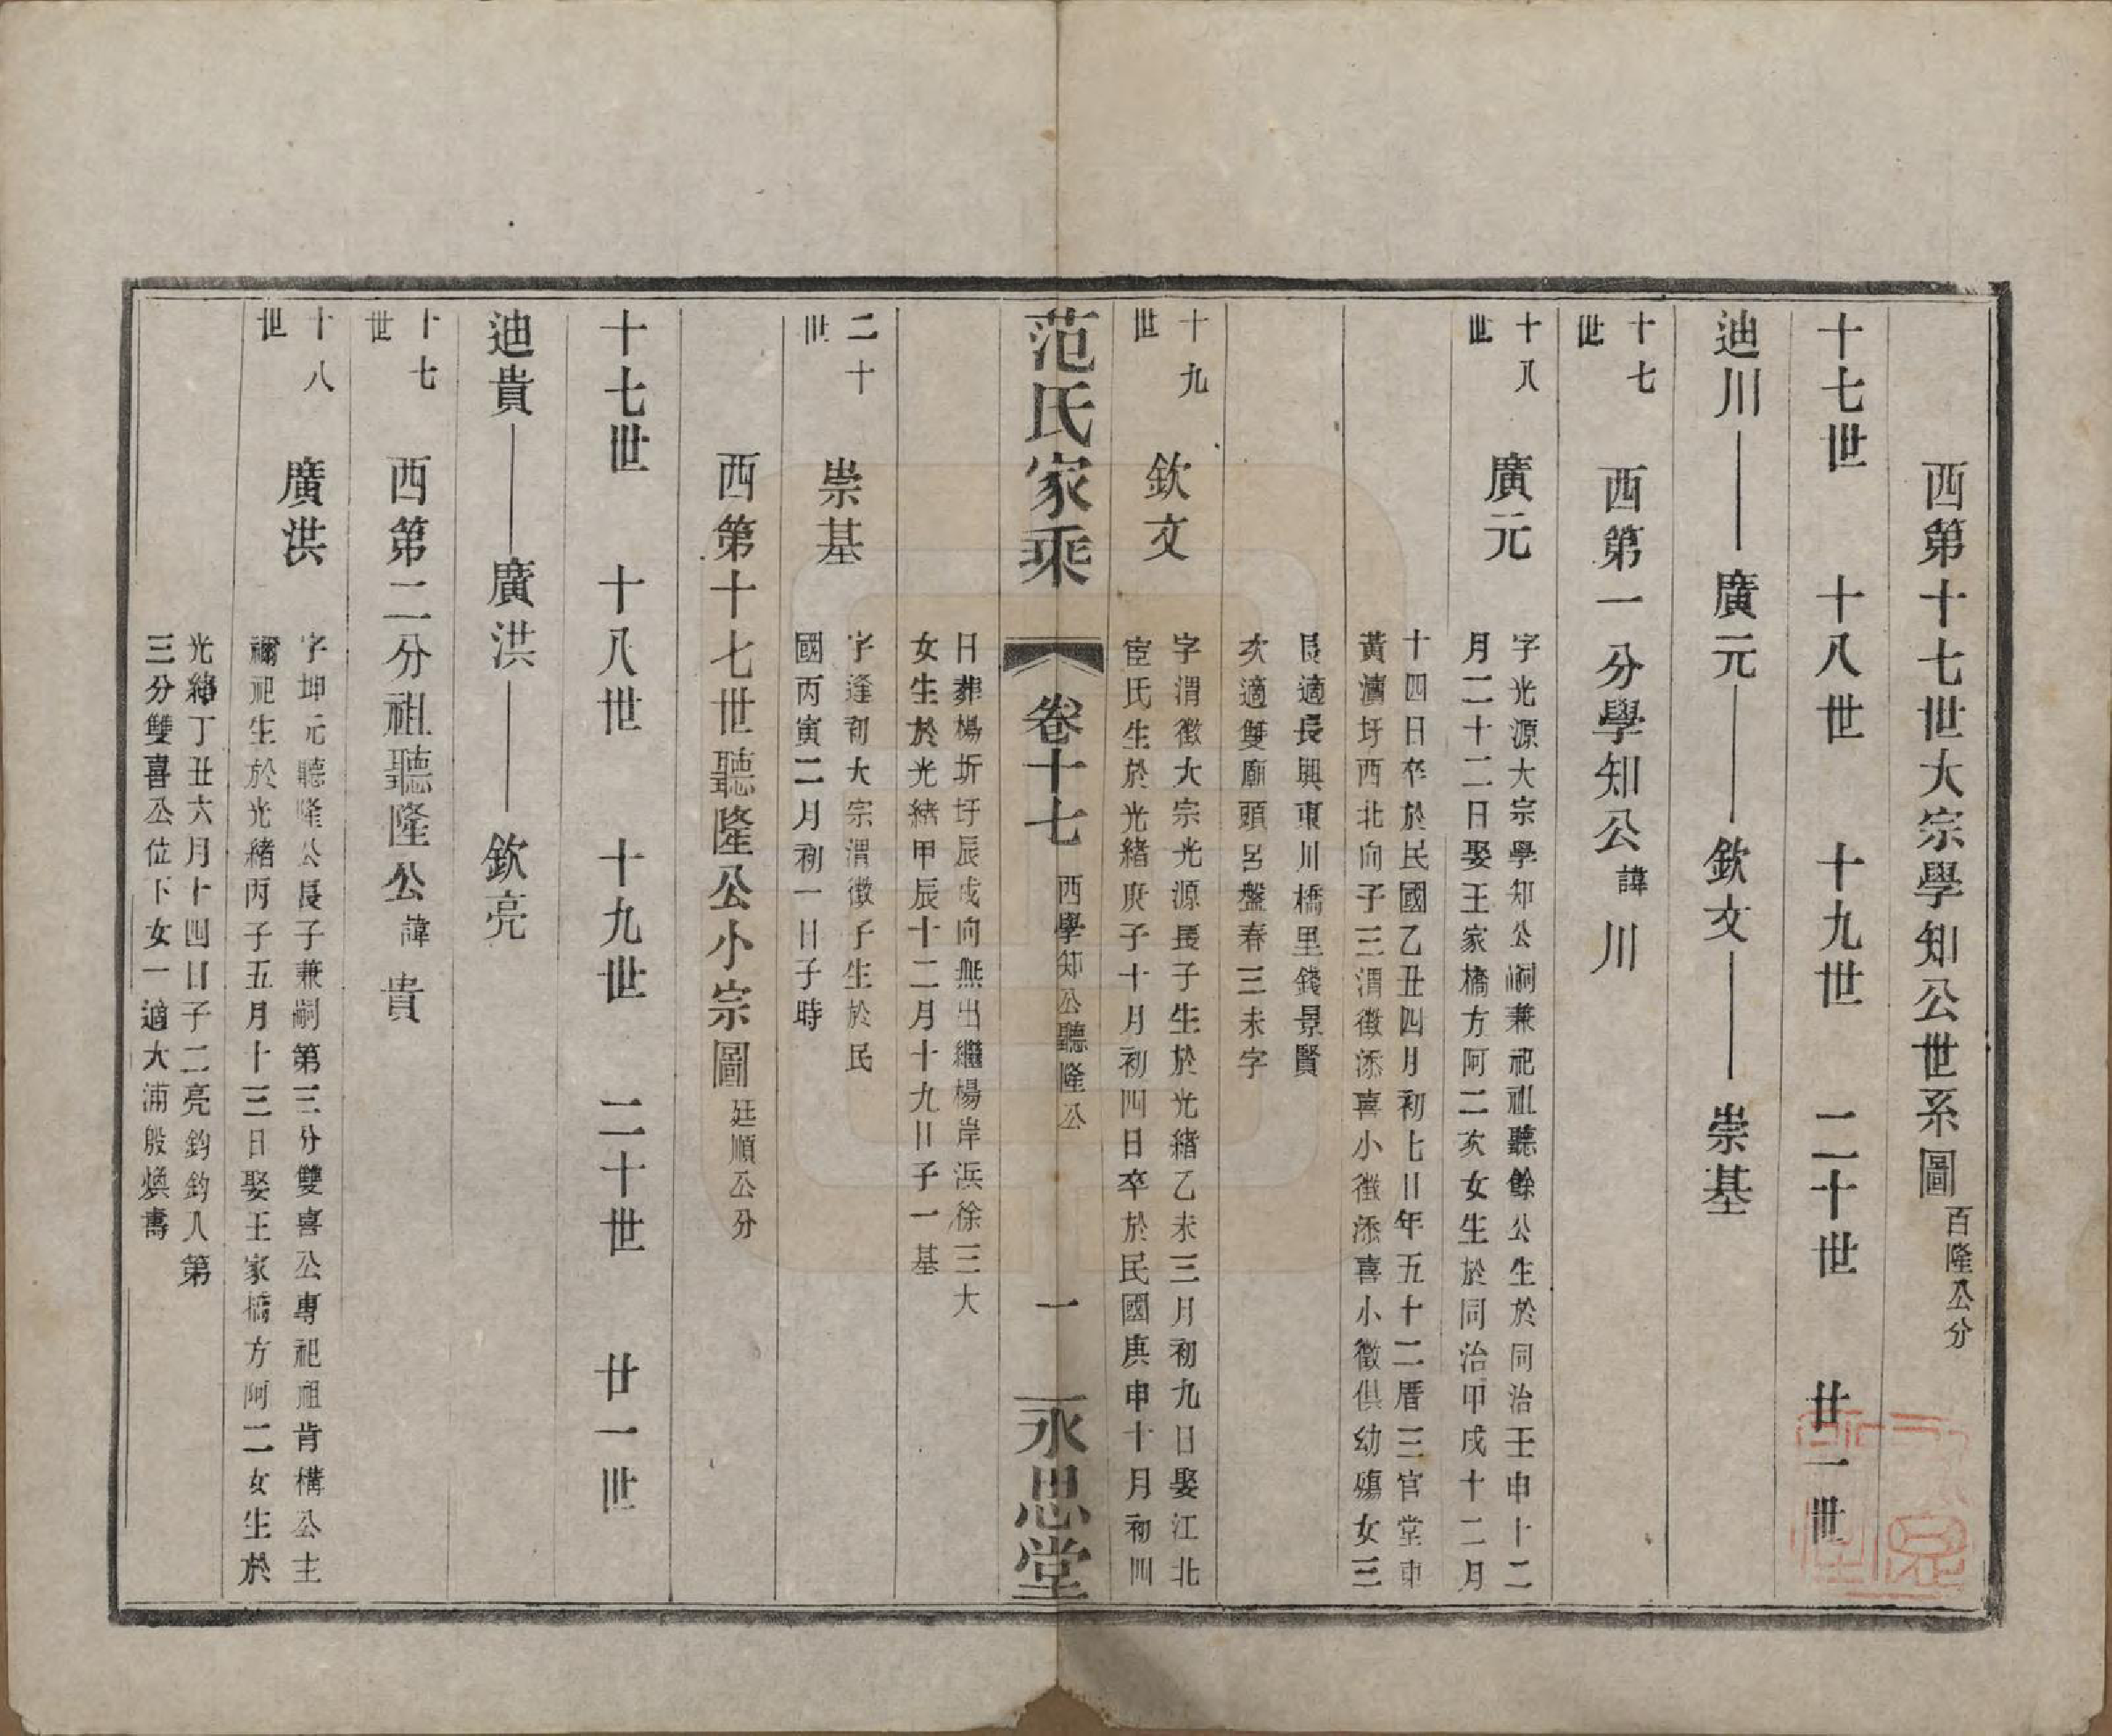 西第十七世大宗學知公世系圖 百隆公分
十七世 十八世 十九世 二十世 廿一世
迪川 廣元 欽文 崇基
十七世 西第一分學知公 諱 川
十八世 廣元 字光源大宗學知公嗣兼祀祖聽餘公生於同治壬申十二
月二十二日娶王家橋方阿二次女生於同治甲戌十二月
十四日卒於民國乙丑四月初七日年五十二厝三官堂東
黃瀆圩西北向子三渭徵添喜小徵添喜小徵俱幼殤女三
長適長興東川橋里錢景賢
次適雙廟頭呂盤春三未字
十九世 欽文 字渭徵大宗光源長子生於光緒乙未三月初九日娶江北
宦氏生於光緒庚子十月初四日卒於民國庚申十月初四
范氏家乘 卷十七 西學知公聽隆公 一 永思堂
日葬楊圻圩辰戌向無出繼楊岸浜徐三大
女生於光緒甲辰十二月十九日子一基
二十世 崇基 字逢初大宗渭徵子生於民
國丙寅二月初一日子時
西第十七世聽隆公小宗圖 廷順公分
十七世 十八世 十九世 二十世 廿一世
迪貴 廣洪 欽亮
十七世 西第二分祖聽隆公 諱 貴
十八世 廣洪 字坤元聽隆公長子兼嗣第三分雙喜公專祀祖肯構公主
禰祀生於光緒丙子五月十三日娶王家橋方阿二女生於
光緒丁丑六月十四日子二亮鈞鈞入第
三分雙喜公位下女一適大浦殷煥壽